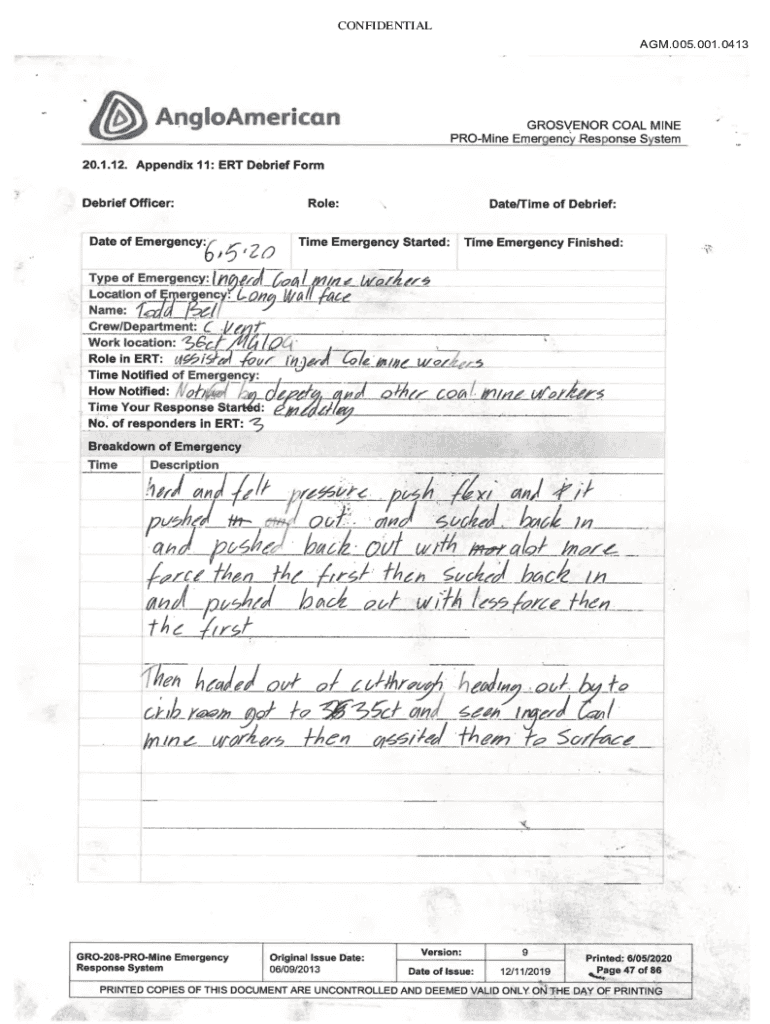 CONFIDENTIAL
AGM.005.001.0413
AngloAmerican
GROSVENOR COAL MINE
PRO-Mine Emergency Response System
20.1.12. Appendix 11: ERT Debrief Form
Debrief Officer: Role: Date/Time of Debrief:
Date of Emergency: 6.5.20 Time Emergency Started: Time Emergency Finished:
Type of Emergency: Ingerd Coal mine workers
Location of Emergency: Long Wall face
Name: Todd Bell
Crew/Department: C Vent
Work location: 36ct MG104
Role in ERT: assisted four ingerd Cole mine workers
Time Notified of Emergency:
How Notified: Notified by depety and other coal mine workers
Time Your Response Started: emedetley
No. of responders in ERT: 3
Breakdown of Emergency
Time Description
herd and felt pressure push flexi and it
pushed in and out and sucked back in
and pushed back out with alot more
force then the first then sucked back in
and pushed back out with less force then
the first
Then headed out of cutthrough heading out by to
crib room got to 35ct and seen ingerd Coal
mine workers then assited them to Surface
GRO-208-PRO-Mine Emergency Response System
Original Issue Date: 06/09/2013
Version: 9
Date of Issue: 12/11/2019
Printed: 6/05/2020
Page 47 of 86
PRINTED COPIES OF THIS DOCUMENT ARE UNCONTROLLED AND DEEMED VALID ONLY ON THE DAY OF PRINTING